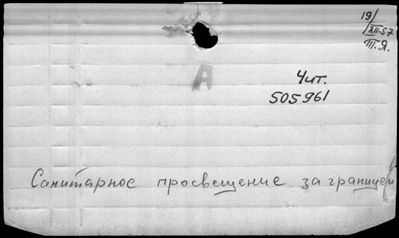 19/
XII-57
Т.Я.
А
Чит.
505961
Санитарное просвещение за границей